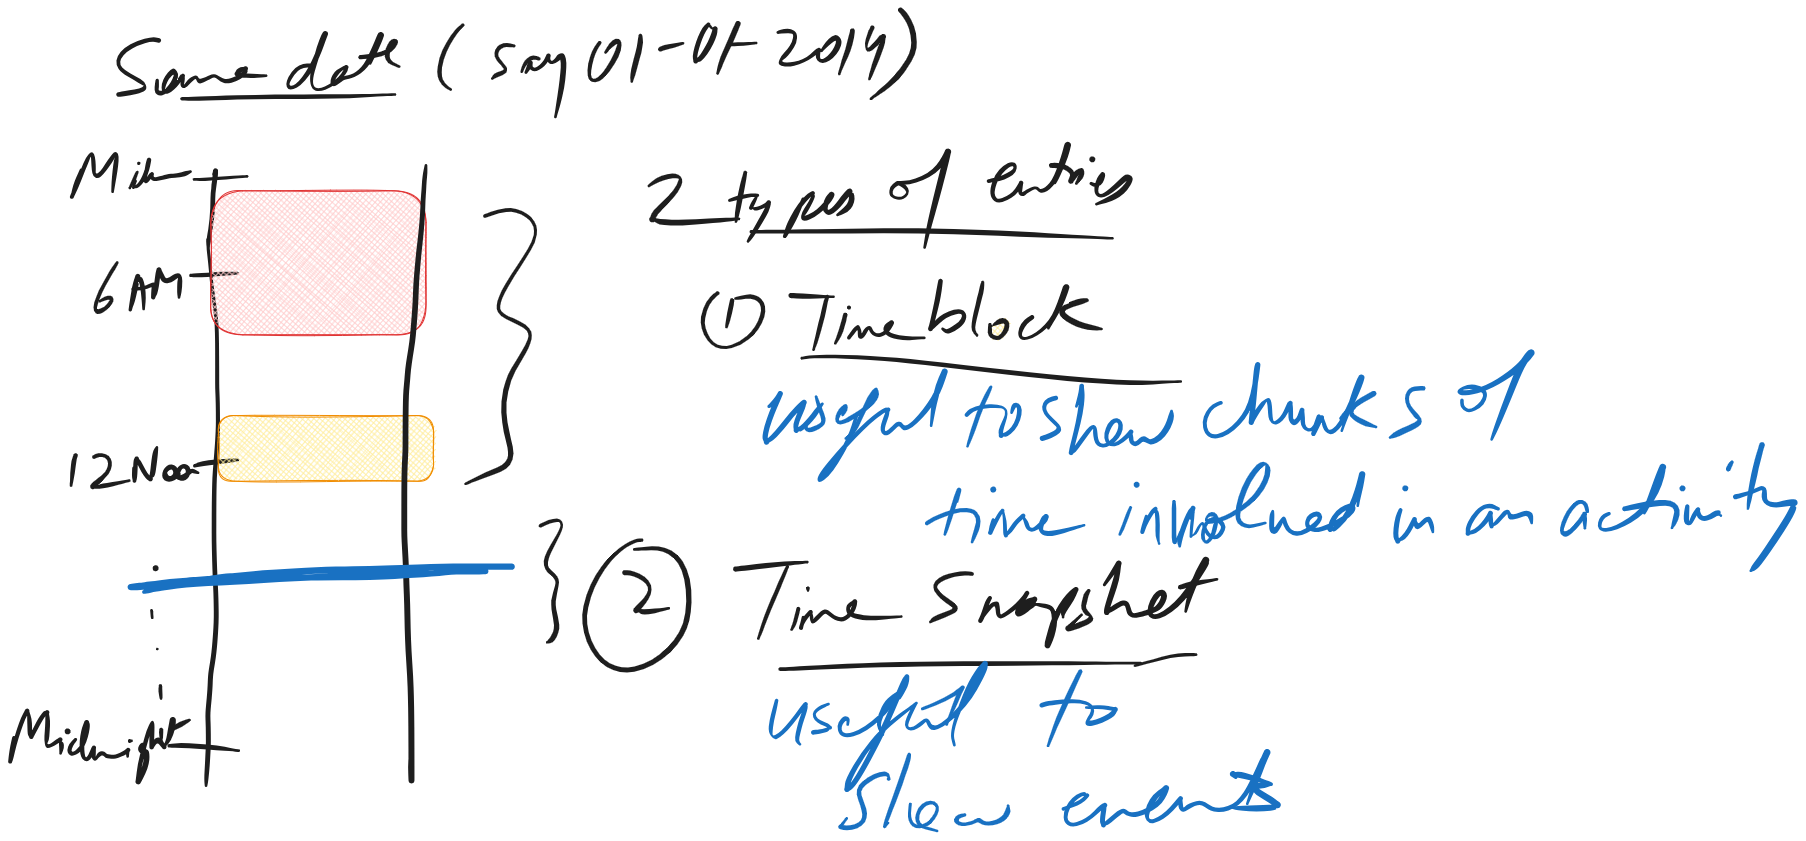 Same date (say 01-01-2014)
Mid
6 AM
12 Noo
Midnight
2 types of entries
① Time block
useful to show chunks of
time involved in an activity
② Time Snapshot
useful to
show events